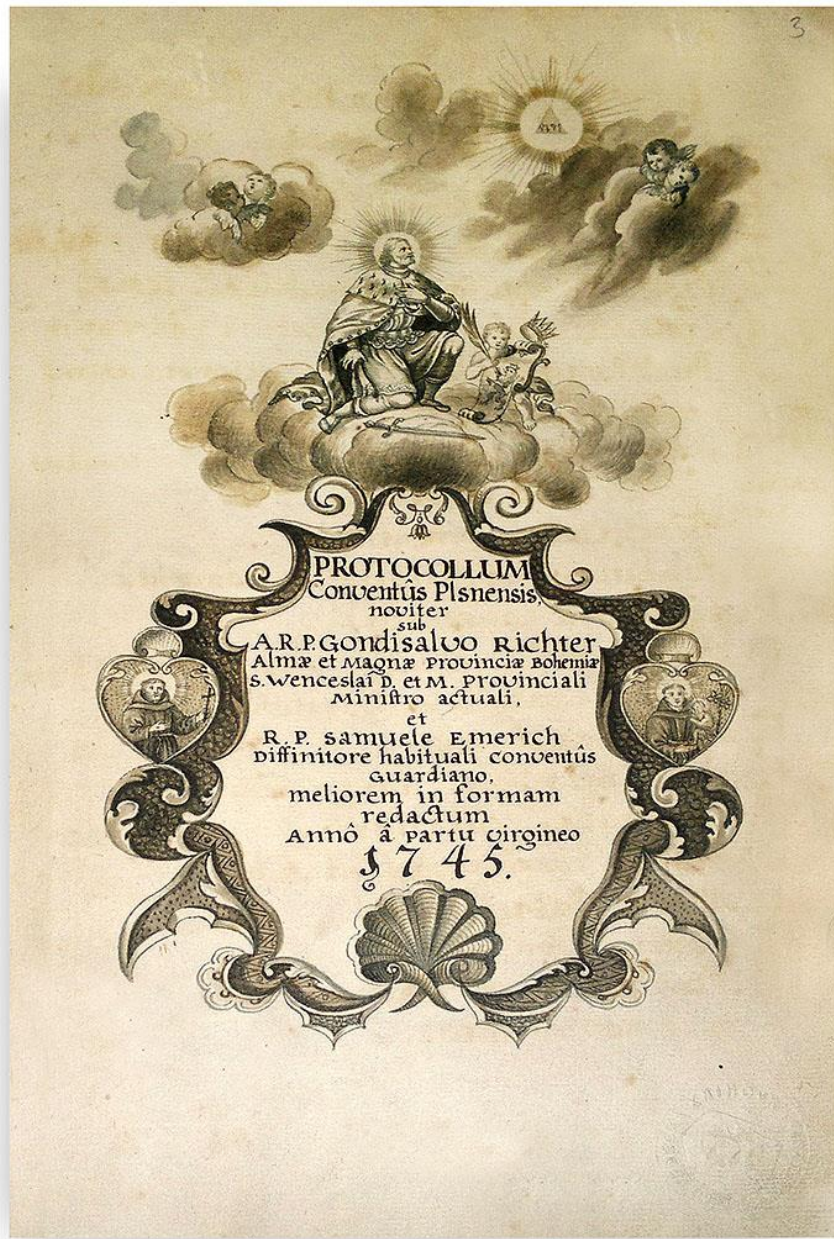 3
PROTOCOLLUM
Conventûs Plsnensis,
noviter
sub
A.R.P. Gondisalvo Richter
Almæ et Magnæ Provinciæ Bohemiæ
S. Wenceslai D. et M. Provinciali
Ministro actuali,
et
R. P. Samuele Emerich
Diffinitore habituali conventûs
Guardiano,
meliorem in formam
redactum
Annô â partu virgineo
1745.